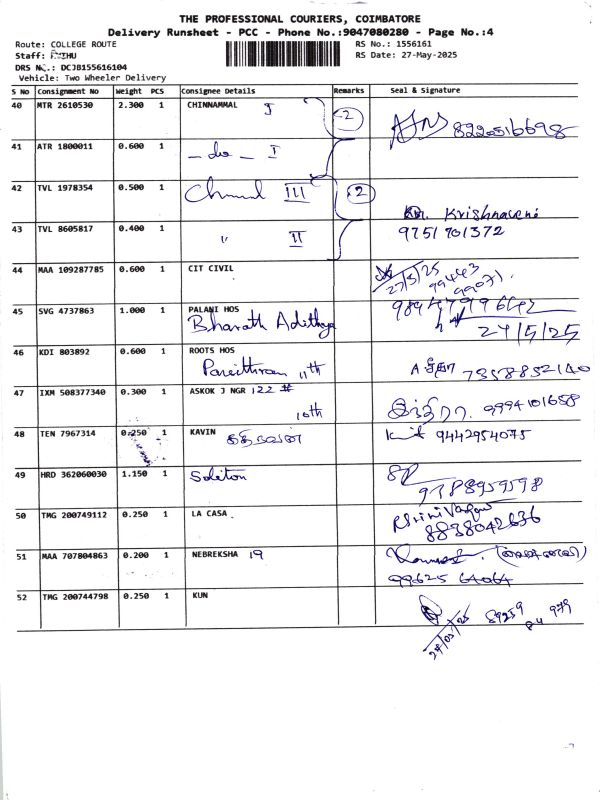 THE PROFESSIONAL COURIERS, COIMBATORE
Delivery Runsheet - PCC - Phone No.:9047080280 - Page No.:4
Route: COLLEGE ROUTE RS No.: 1556161
Staff: RS Date: 27-May-2025
DRS No.: DCJB155616104
Vehicle: Two Wheeler Delivery
S No Consignment No Weight PCS Consignee Details Remarks Seal & Signature
40 MTR 2610530 2.300 1 CHINNAMMAL I 2
8220516698
41 ATR 1800011 0.600 1 - do - I
42 TVL 1978354 0.500 1 III 2
Krishnaveni
43 TVL 8605817 0.400 1 " II 9751701372
44 MAA 109287785 0.600 1 CIT CIVIL
27/5/25 99443
99071
45 SVG 4737863 1.000 1 PALANI HOS
Bharath Adithya
27/5/25
46 KDI 803892 0.600 1 ROOTS HOS
11th 7358852140
47 IXM 508377340 0.300 1 ASKOK J NGR 122 #
10th 9994101658
48 TEN 7967314 0.250 1 KAVIN கதிரவன் 9442954075
49 HRD 362060030 1.150 1 Soliton
9788959598
50 TMG 200749112 0.250 1 LA CASA
8838042636
51 MAA 707804863 0.200 1 NEBREKSHA 19
99625 64064
52 TMG 200744798 0.250 1 KUN
89259
979